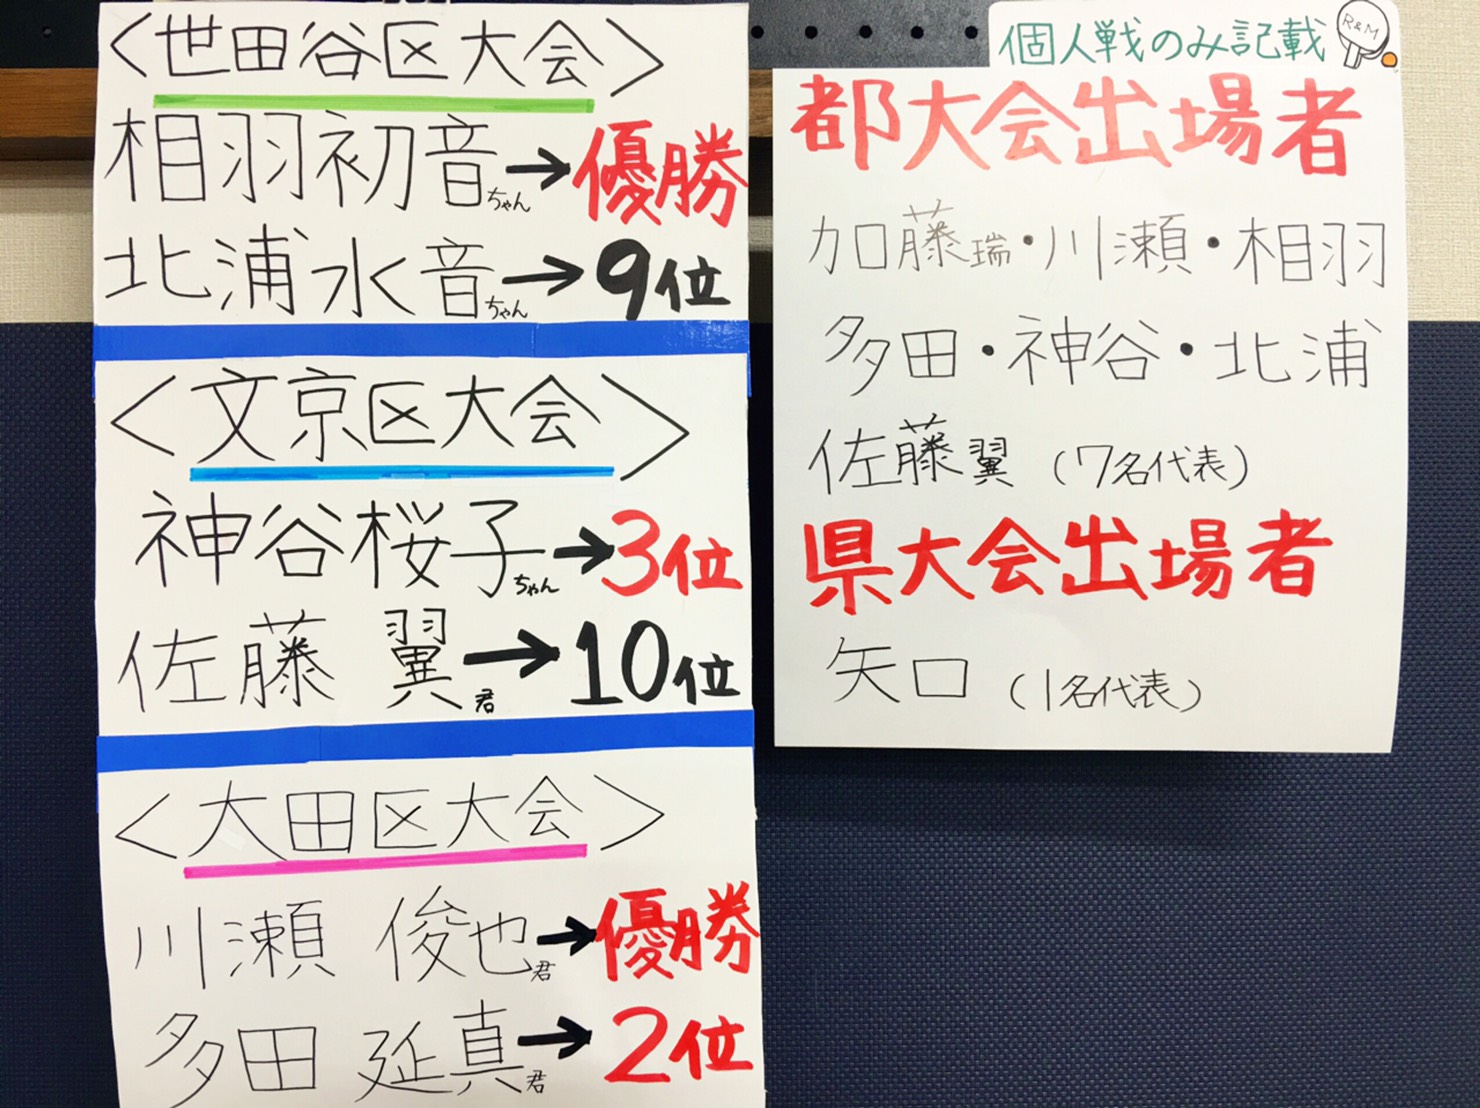 〈世田谷区大会〉
相羽初音ちゃん→優勝
北浦水音ちゃん→9位
〈文京区大会〉
神谷桜子ちゃん→3位
佐藤 翼君→10位
〈大田区大会〉
川瀬 俊也君→優勝
多田 延真君→2位
個人戦のみ記載
R&M
都大会出場者
加藤瑞・川瀬・相羽
多田・神谷・北浦
佐藤翼(7名代表)
県大会出場者
矢口(1名代表)